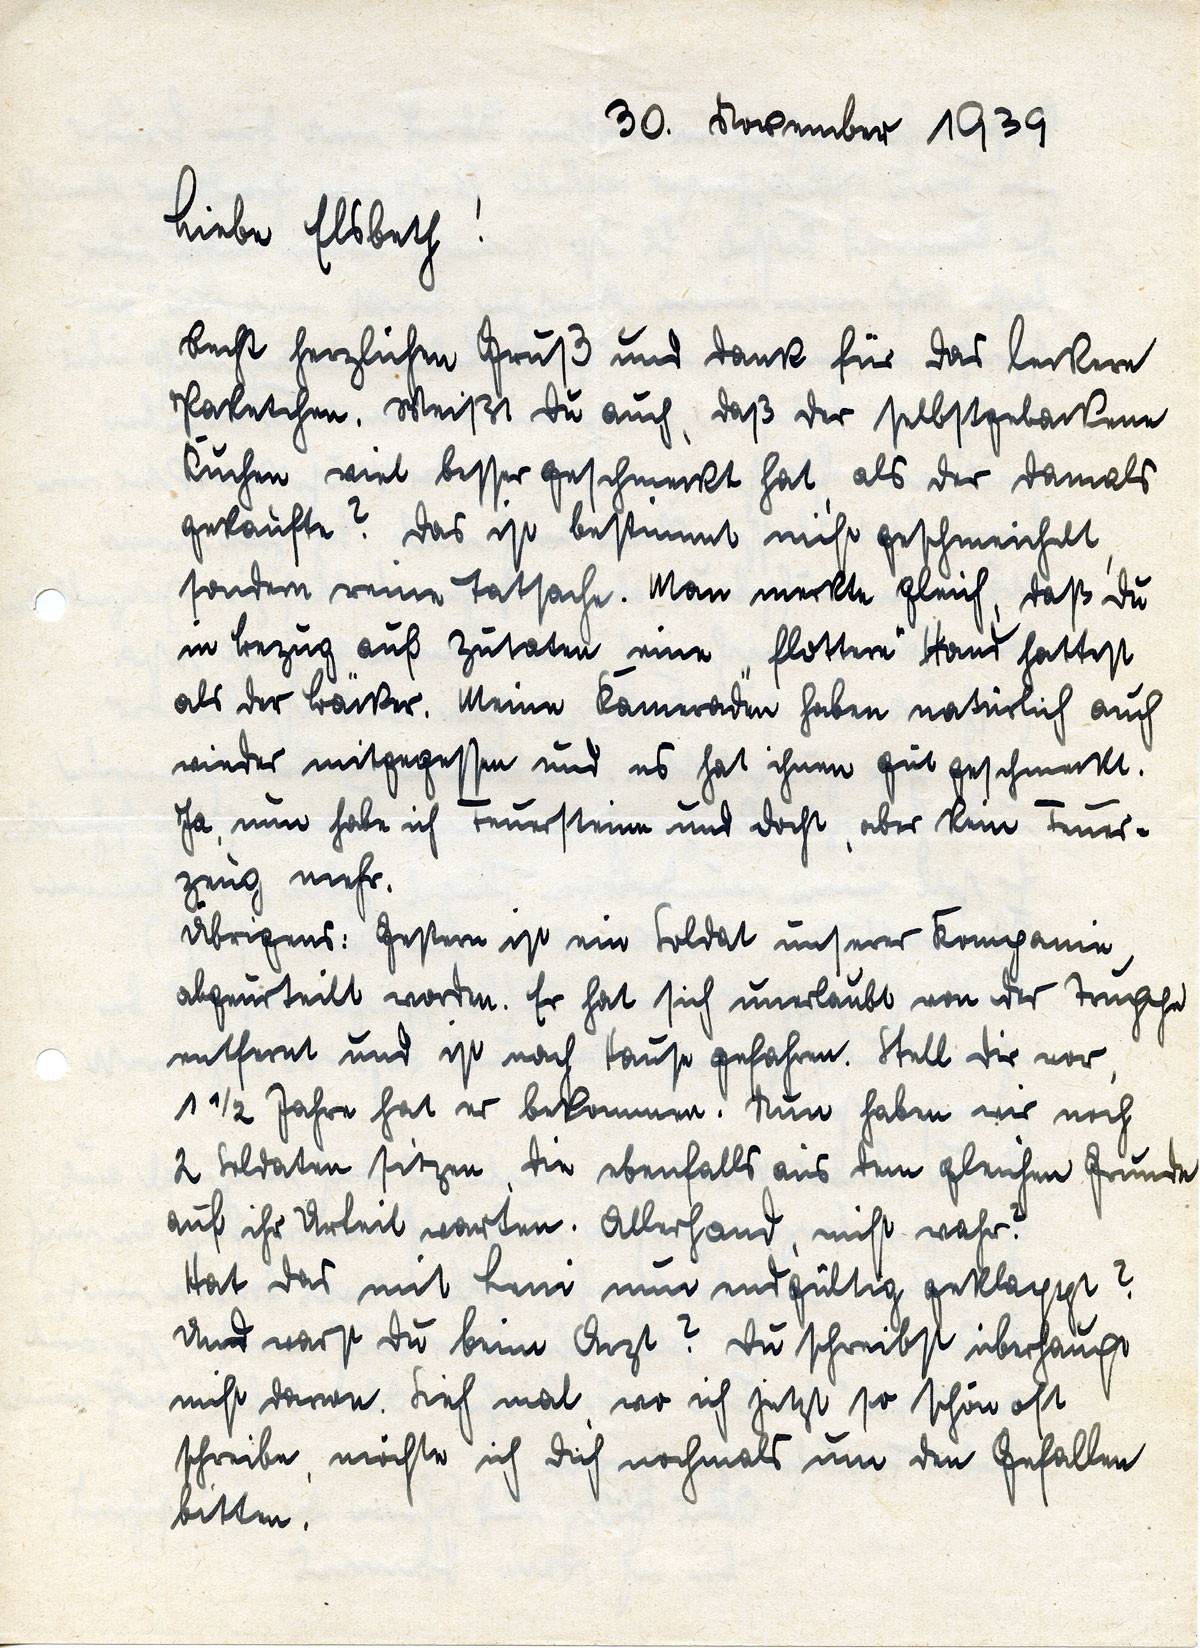 30. November 1939
Liebe Elsbeth!
Recht herzlichen Gruß und Dank für das leckere
Paketchen. Weißt Du auch, daß der selbstgebackene
Kuchen viel besser geschmeckt hat, als der damals
gekaufte? Das ist bestimmt nicht geschmeichelt,
sondern reine Tatsache. Man merkte gleich, daß Du
in Bezug auf Zutaten eine „flottere" Hand hattest
als der Bäcker. Meine Kameraden haben natürlich auch
wieder mitgegessen und es hat ihnen gut geschmeckt.
Ja, nun habe ich Feuersteine und Docht, aber kein Feuer-
zeug mehr.
Übrigens: Gestern ist ein Soldat unserer Kompanie
abgeurteilt worden. Er hat sich unerlaubt von der Truppe
entfernt und ist nach Hause gefahren. Stell Dir vor,
1 1/2 Jahre hat er bekommen. Nun haben wir noch
2 Soldaten sitzen, die ebenfalls aus dem gleichen Grunde
auf ihr Urteil warten. Allerhand, nicht wahr?
Hat das mit Leni nun endgültig geklappt?
Und warst Du beim Arzt? Du schreibst überhaupt
nicht davon. Sieh mal, wo ich jetzt so schön oft
schreibe, möchte ich Dich nochmals um den Gefallen
bitten.